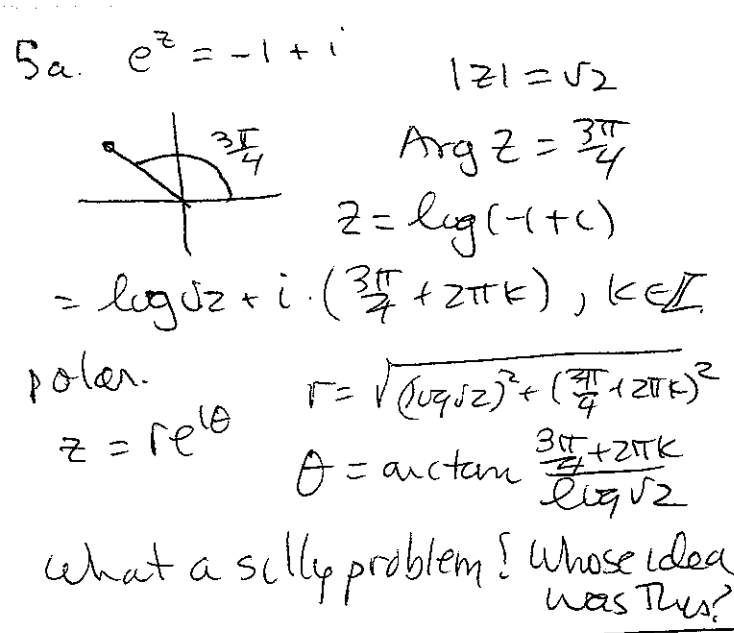 5a. e^z = -1 + i
|z| = √2
3π/4
Arg z = 3π/4
z = log(-1+i)
= log√2 + i·(3π/4 + 2πk), k∈Z
polar.
z = re^iθ
r = √((log√2)² + (3π/4 + 2πk)²)
θ = arctan (3π/4 + 2πk)/(log√2)
What a silly problem! Whose idea
was This?